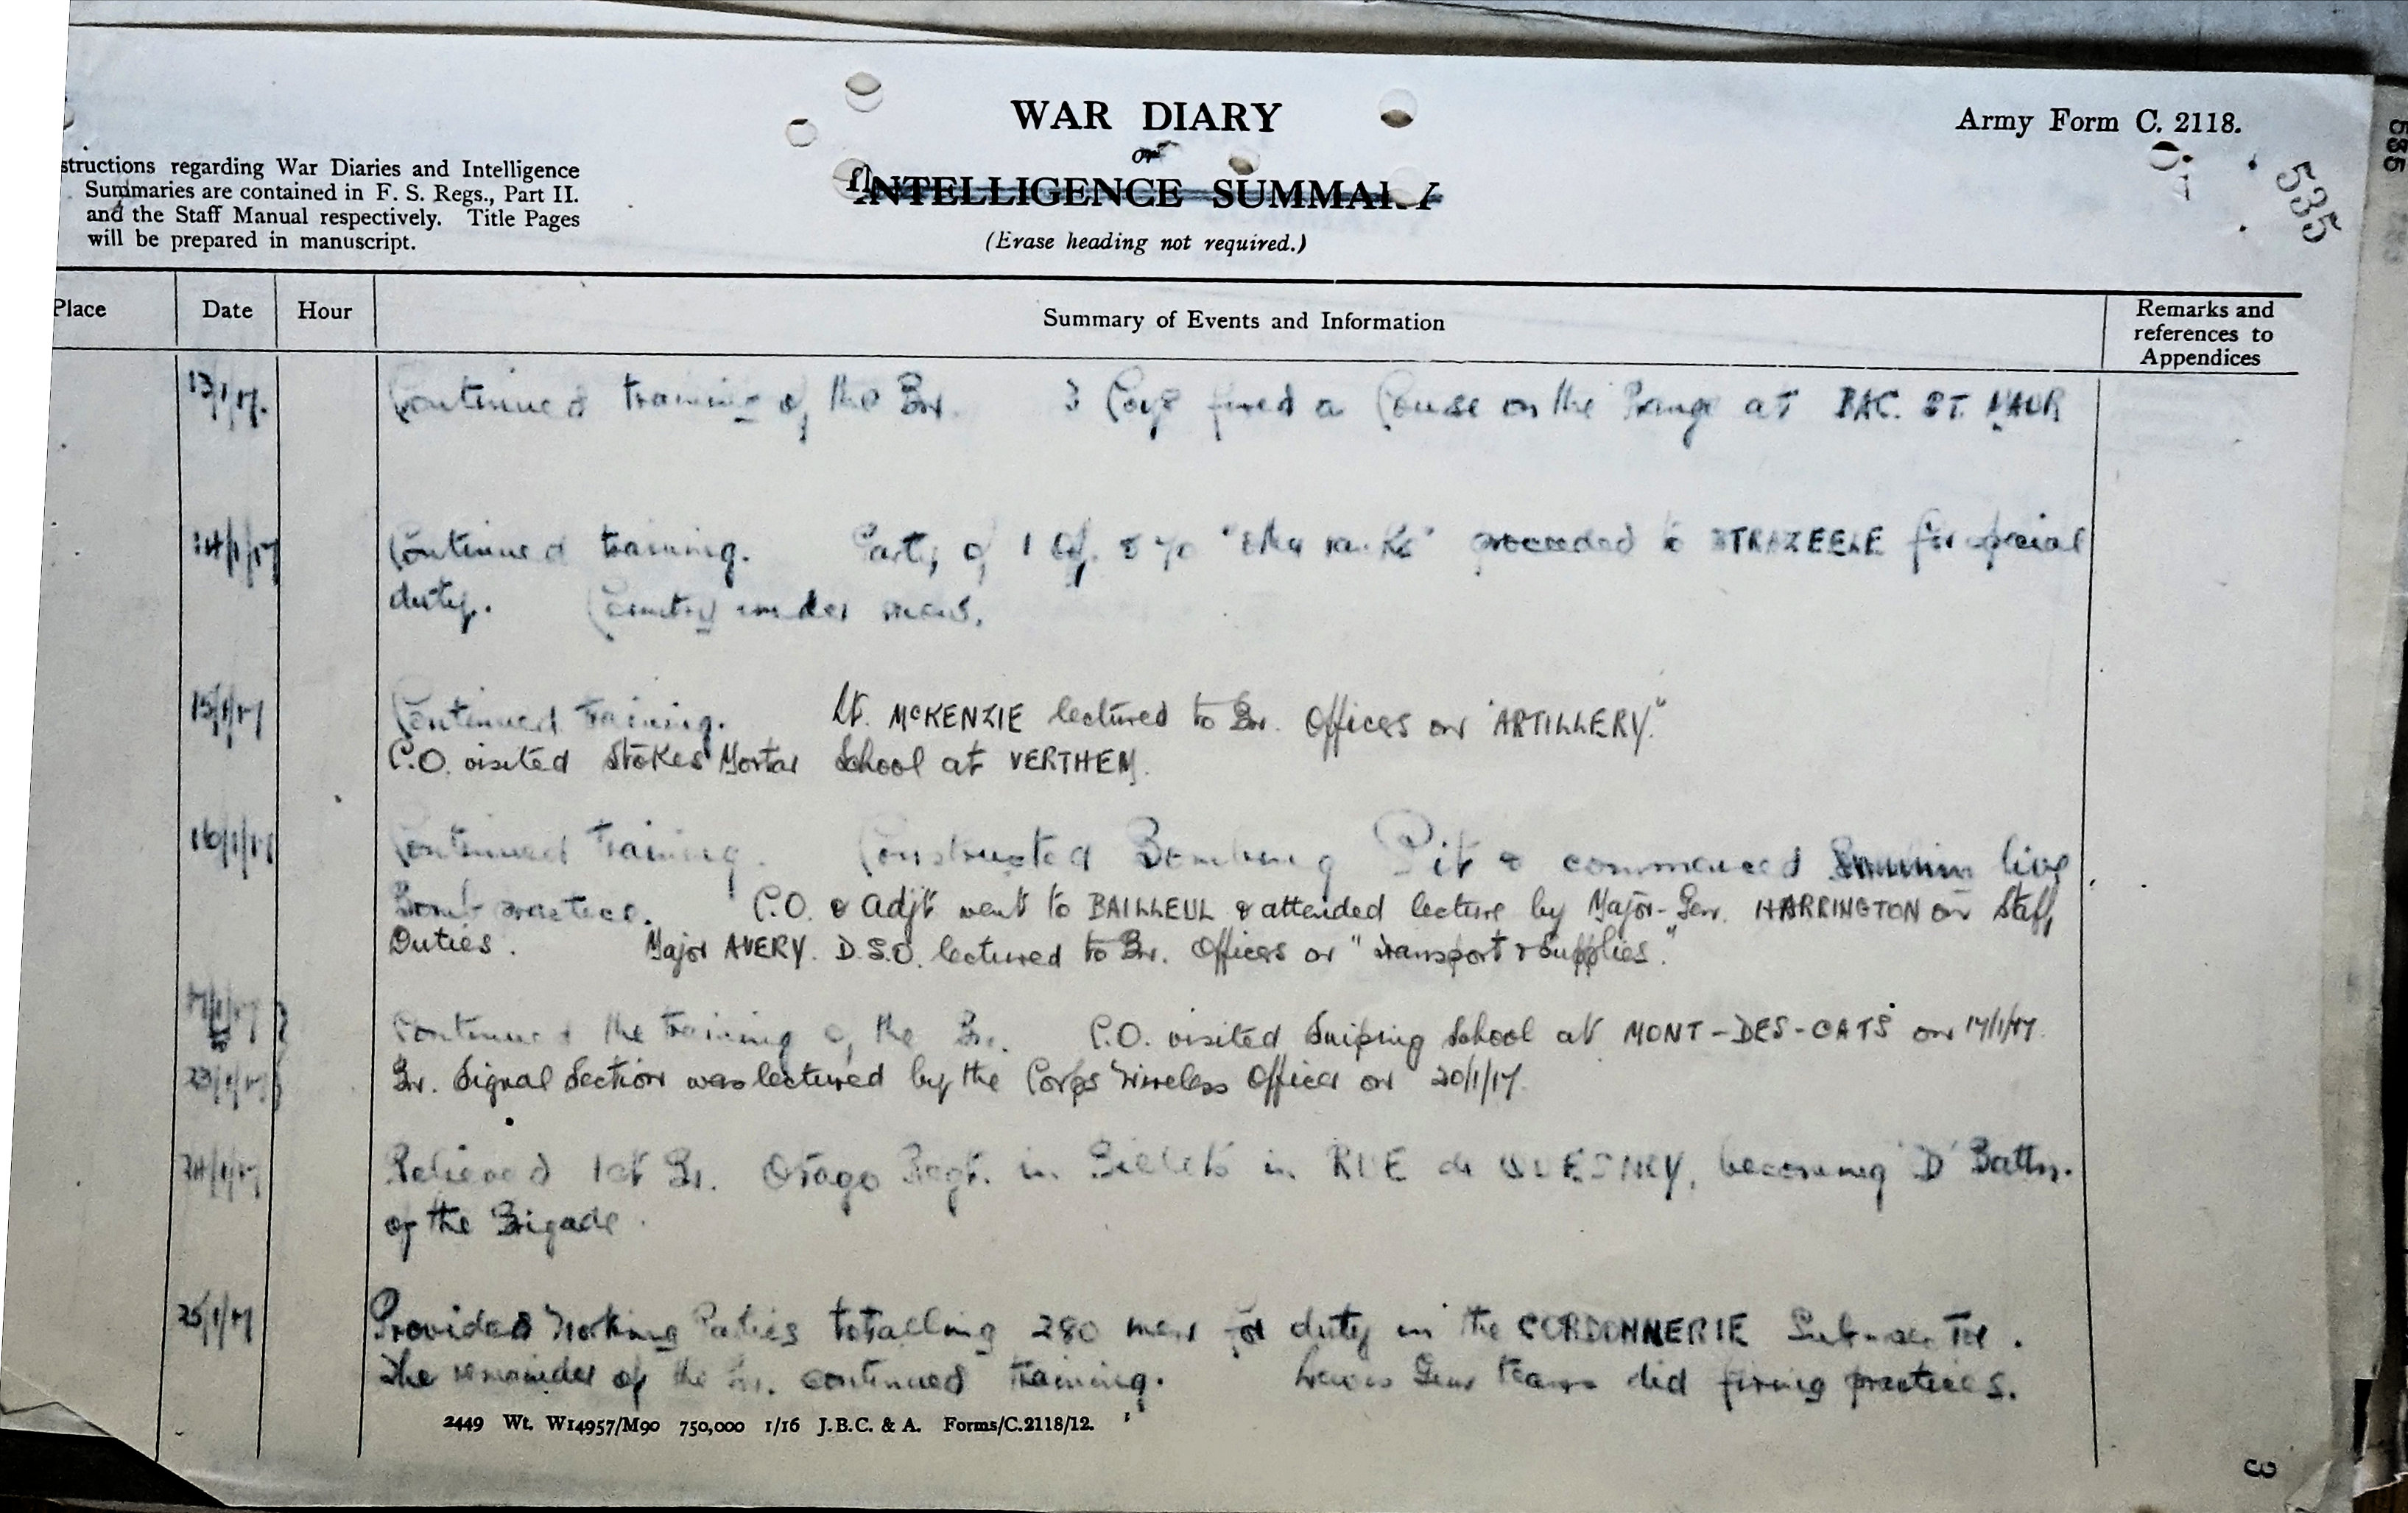 WAR DIARY
or
INTELLIGENCE SUMMARY
(Erase heading not required.)
Army Form C. 2118.
535
535
structions regarding War Diaries and Intelligence
Summaries are contained in F. S. Regs., Part II.
and the Staff Manual respectively. Title Pages
will be prepared in manuscript.
Place Date Hour Summary of Events and Information Remarks and references to Appendices
13/1/17. Continued training of the Bn. 3 Coys fired a Course on the Range at BAC. ST. MAUR
14/1/17 Continued training. Party of 1 Off. & 70 "other ranks" proceeded to STRAZEELE for special
duty. Country under snow.
15/1/17 Continued training. Lt. McKENZIE lectured to Bn. Officers on "ARTILLERY."
C.O. visited Stokes Mortar School at VERTHEM.
16/1/17 Continued training. Constructed Bombing Pit & commenced live
Bomb practice. C.O. & Adjt went to BAILLEUL & attended lecture by Major-Gen. HARRINGTON on Staff
Duties. Major AVERY. D.S.O. lectured to Bn. Officers on "Transport & Supplies."
17/1/17 Continued the training of the Bn. C.O. visited Sniping School at MONT-DES-CATS on 17/1/17.
23/1/17 Bn. Signal Section was lectured by the Corps Wireless Officer on 20/1/17.
24/1/17 Relieved 1st Bn. Otago Regt. in Billets in RUE du QUESNEY, becoming 'D' Battn.
of the Brigade.
25/1/17 Provided Working Parties totalling 280 men for duty in the CORDONNERIE Sub-sector.
The remainder of the Bn. continued training. Lewis Gun teams did firing practices.
2449 Wt. W14957/M90 750,000 1/16 J.B.C. & A. Forms/C.2118/12.
3